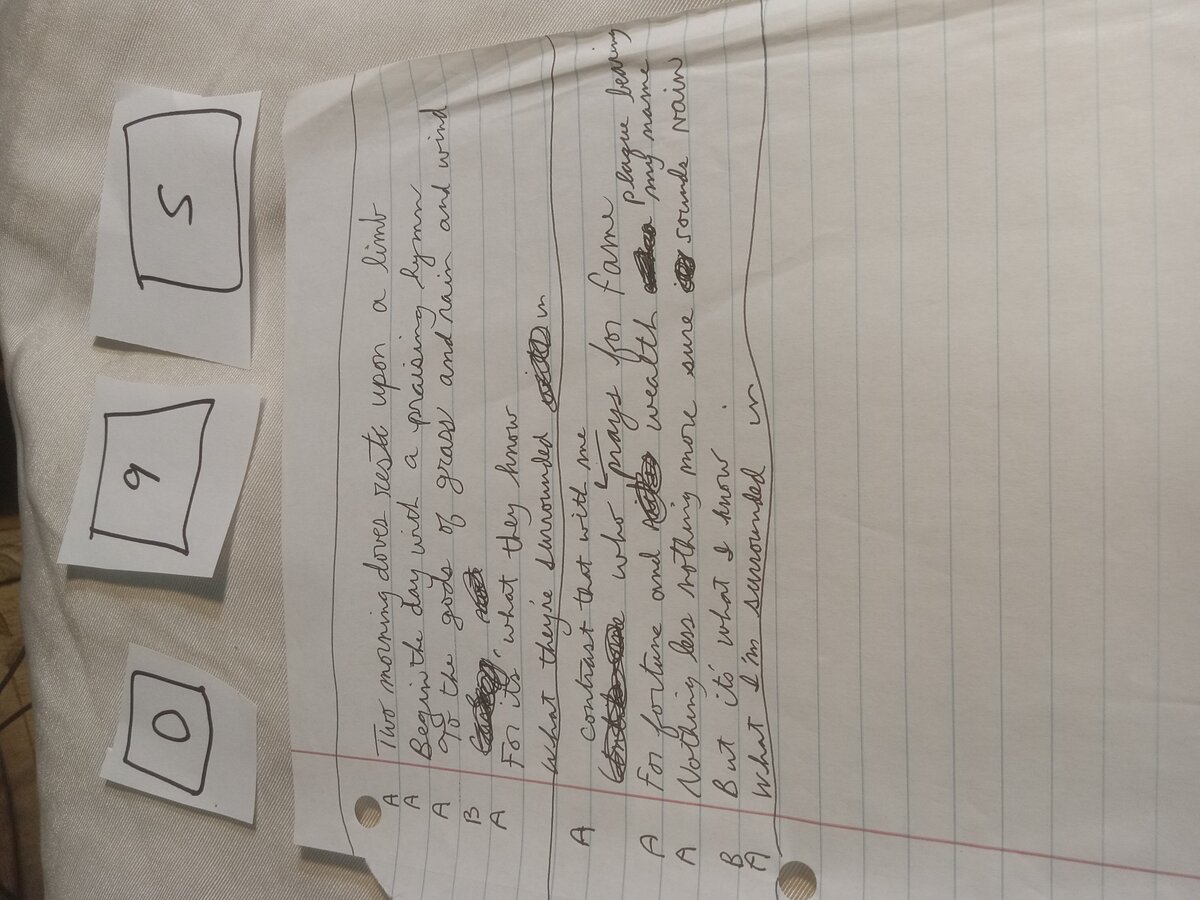 0 9 5
Two morning doves rest upon a limb
A
A Begin the day with a praising hymn
A To the gods of grass and rain and wind
B
For it's what they know
A
What they're surrounded in
A contrast that with me
who prays for fame
A For fortune and wealth plaque bearing my name
A Nothing less nothing more sure sounds vain
B But it's what I know
A What I'm surrounded in